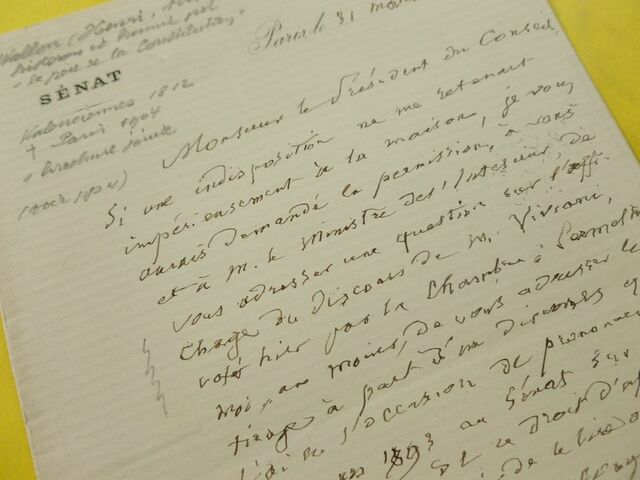 Wallon (Henri,
historien et homme pol
"le père de la Constitution"
SÉNAT
Valenciennes 1812
† Paris 1904
1 brochure jointe
(voir 1904)
Paris, le 31 mars
Monsieur le Président du Conseil,
Si une indisposition ne me retenait
impérieusement à la maison, je vous
aurais demandé la permission, à vous
et à M. le Ministre de l'Intérieur de
vous adresser une question sur l'affi-
chage du discours de M. Viviani,
voté hier par la Chambre. Permettez
moi, au moins, de vous adresser le
tirage à part d'un discours
l'occasion de prononcer
1893 au Sénat sur
le droit d'
de la